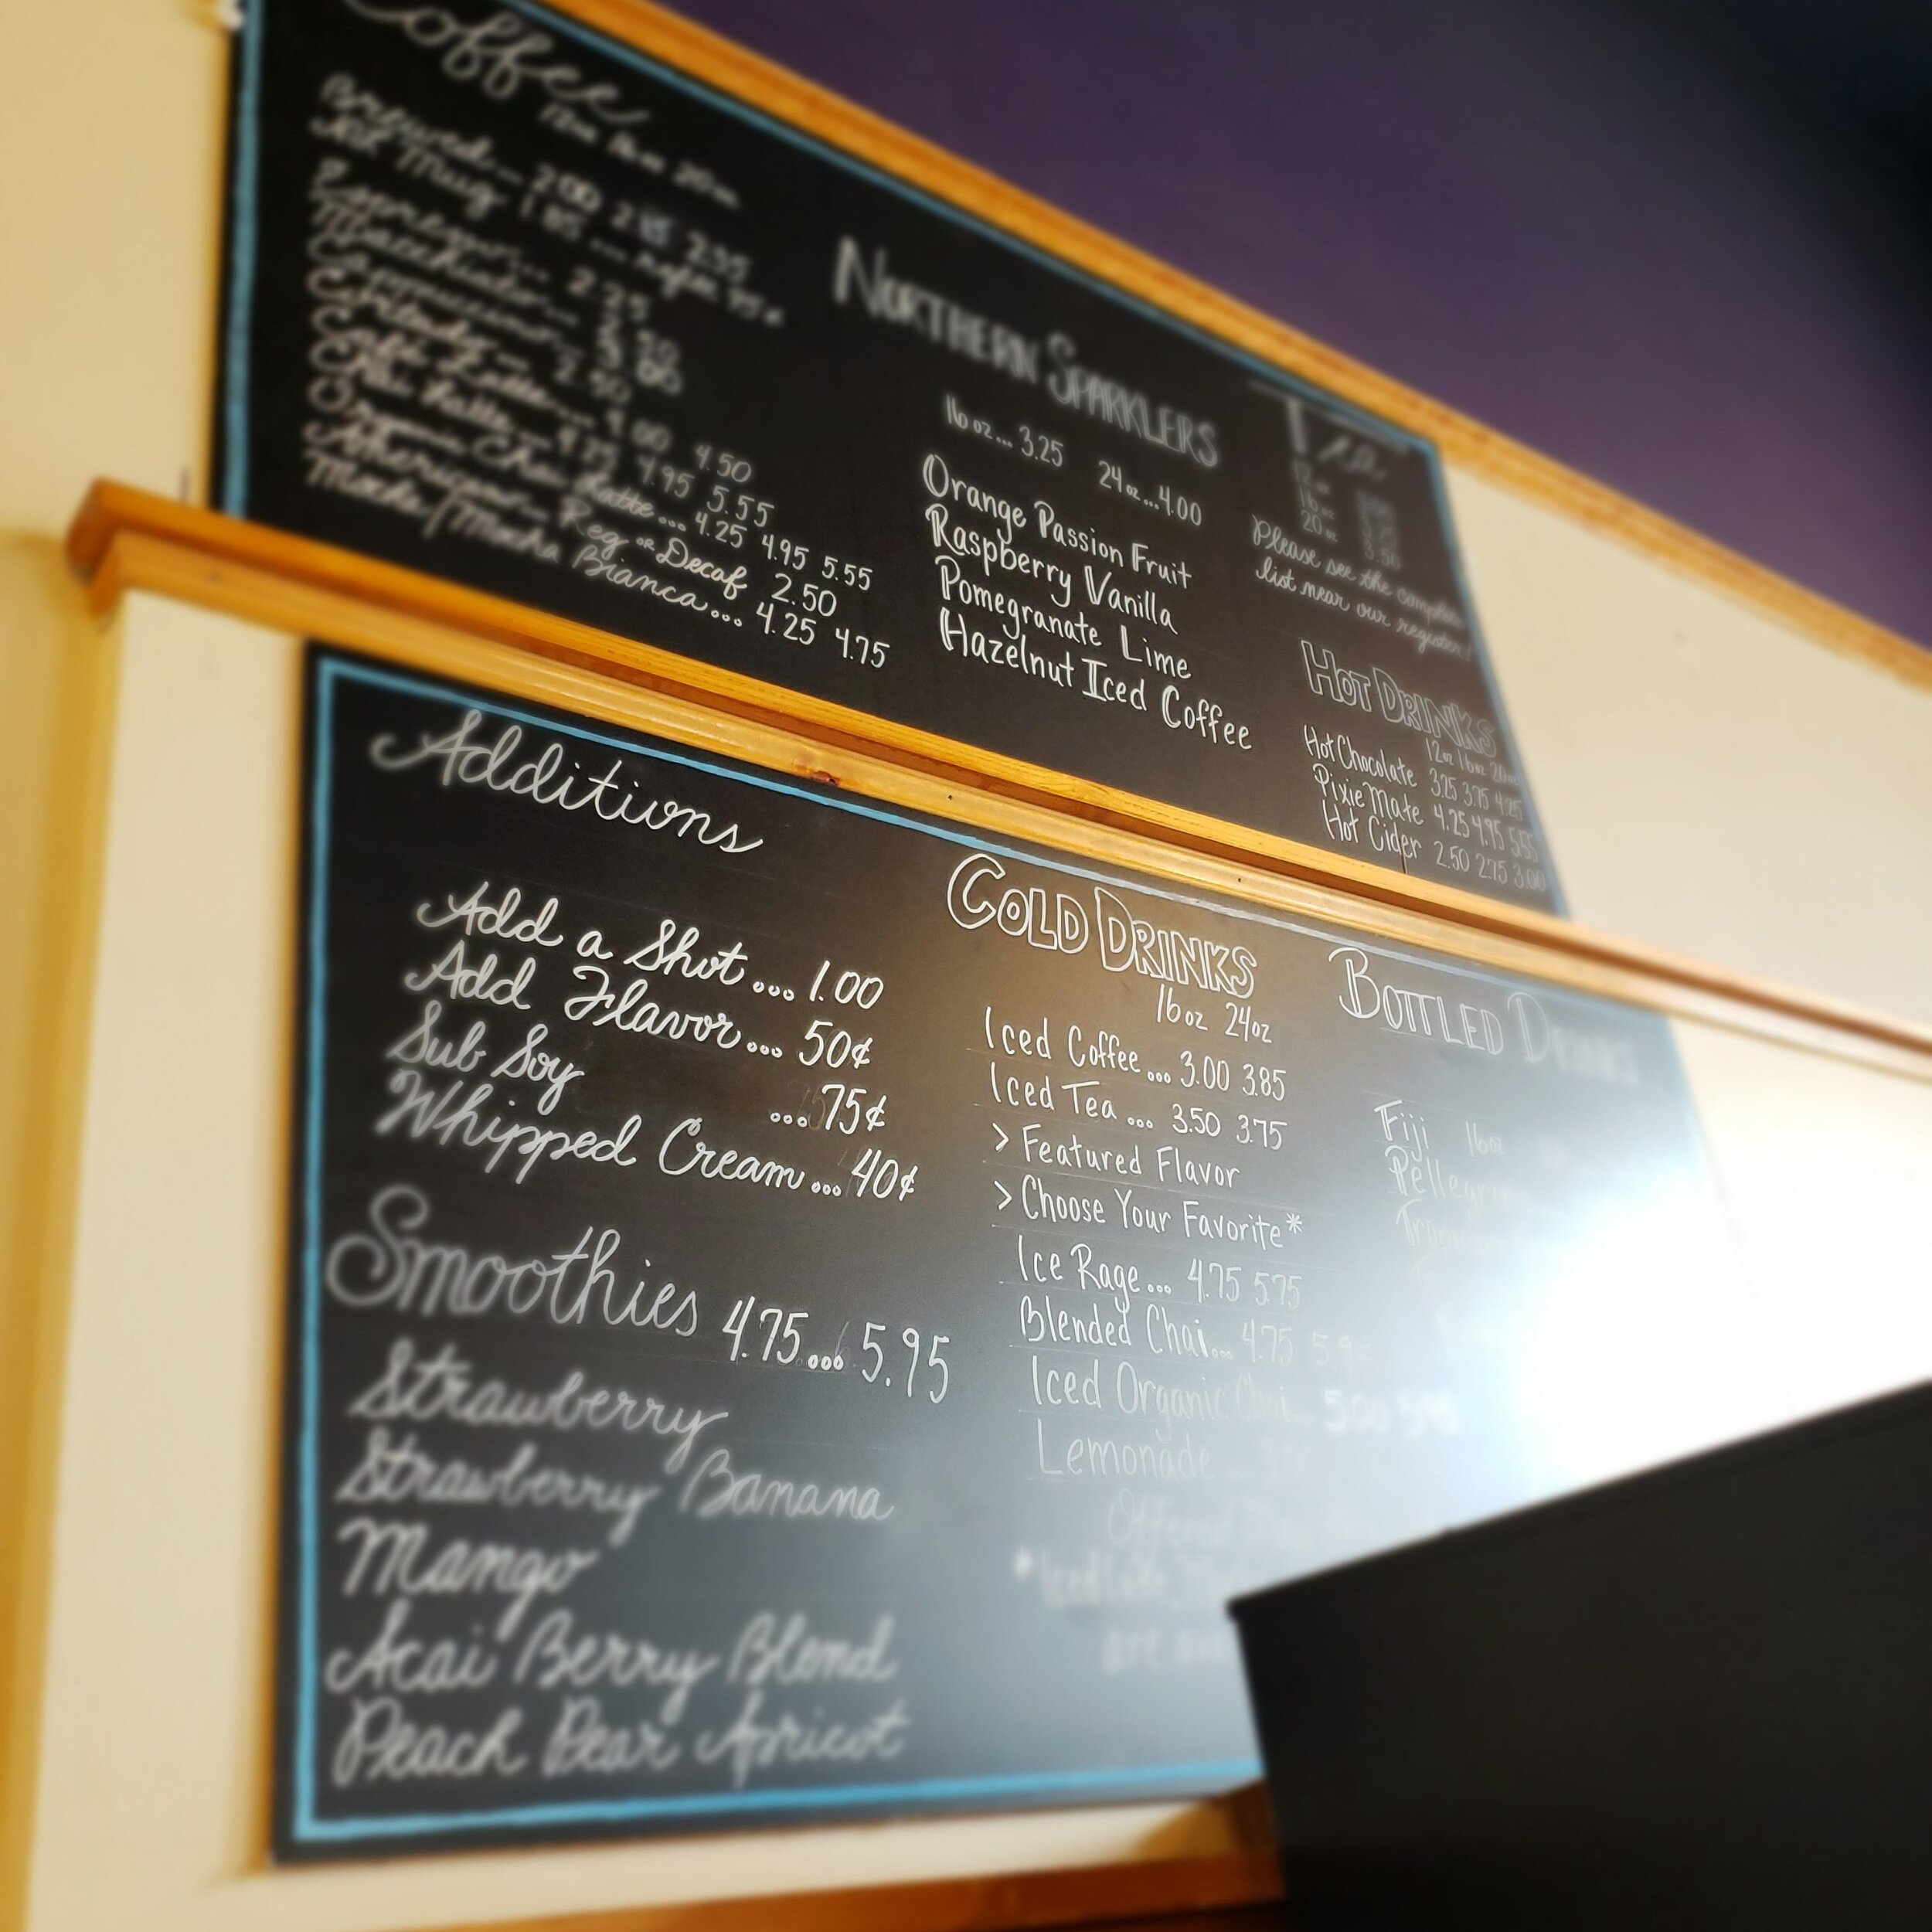 Coffee
12oz 16oz 20oz
Brewed... 2.00 2.45 2.95
Mug 1.85 ... refill 95¢
Espresso... 2.25
Macchiato... 2.50
Cappuccino... 3.00
Cortado... 2.50
Café Latte... 4.00 4.50
Chai Latte... 4.25 4.95 5.55
Organic Chai Latte... 4.25 4.95 5.55
Americano... Reg or Decaf 2.50
Mocha/Mocha Bianca... 4.25 4.75
NORTHERN SPARKLERS
16oz... 3.25 24oz...4.00
Orange Passion Fruit
Raspberry Vanilla
Pomegranate Lime
Hazelnut Iced Coffee
Tea
12oz
16oz
20oz
Please see the complete
list near our register!
HOT DRINKS
12oz 16oz 20oz
Hot Chocolate 3.25 3.75 4.25
Pixie Mate 4.25 4.95 5.55
Hot Cider 2.50 2.75 3.00
Additions
Add a Shot... 1.00
Add Flavor... 50¢
Sub Soy ...75¢
Whipped Cream... 40¢
Smoothies 4.75...5.95
Strawberry
Strawberry Banana
Mango
Acai Berry Blend
Peach Pear Apricot
COLD DRINKS
16oz 24oz
Iced Coffee... 3.00 3.85
Iced Tea... 3.50 3.75
> Featured Flavor
> Choose Your Favorite*
Ice Rage... 4.75 5.75
Blended Chai... 4.75
Iced Organic Chai...
Lemonade
Offered
*Iced
are
BOTTLED DRINKS
Fiji 16oz